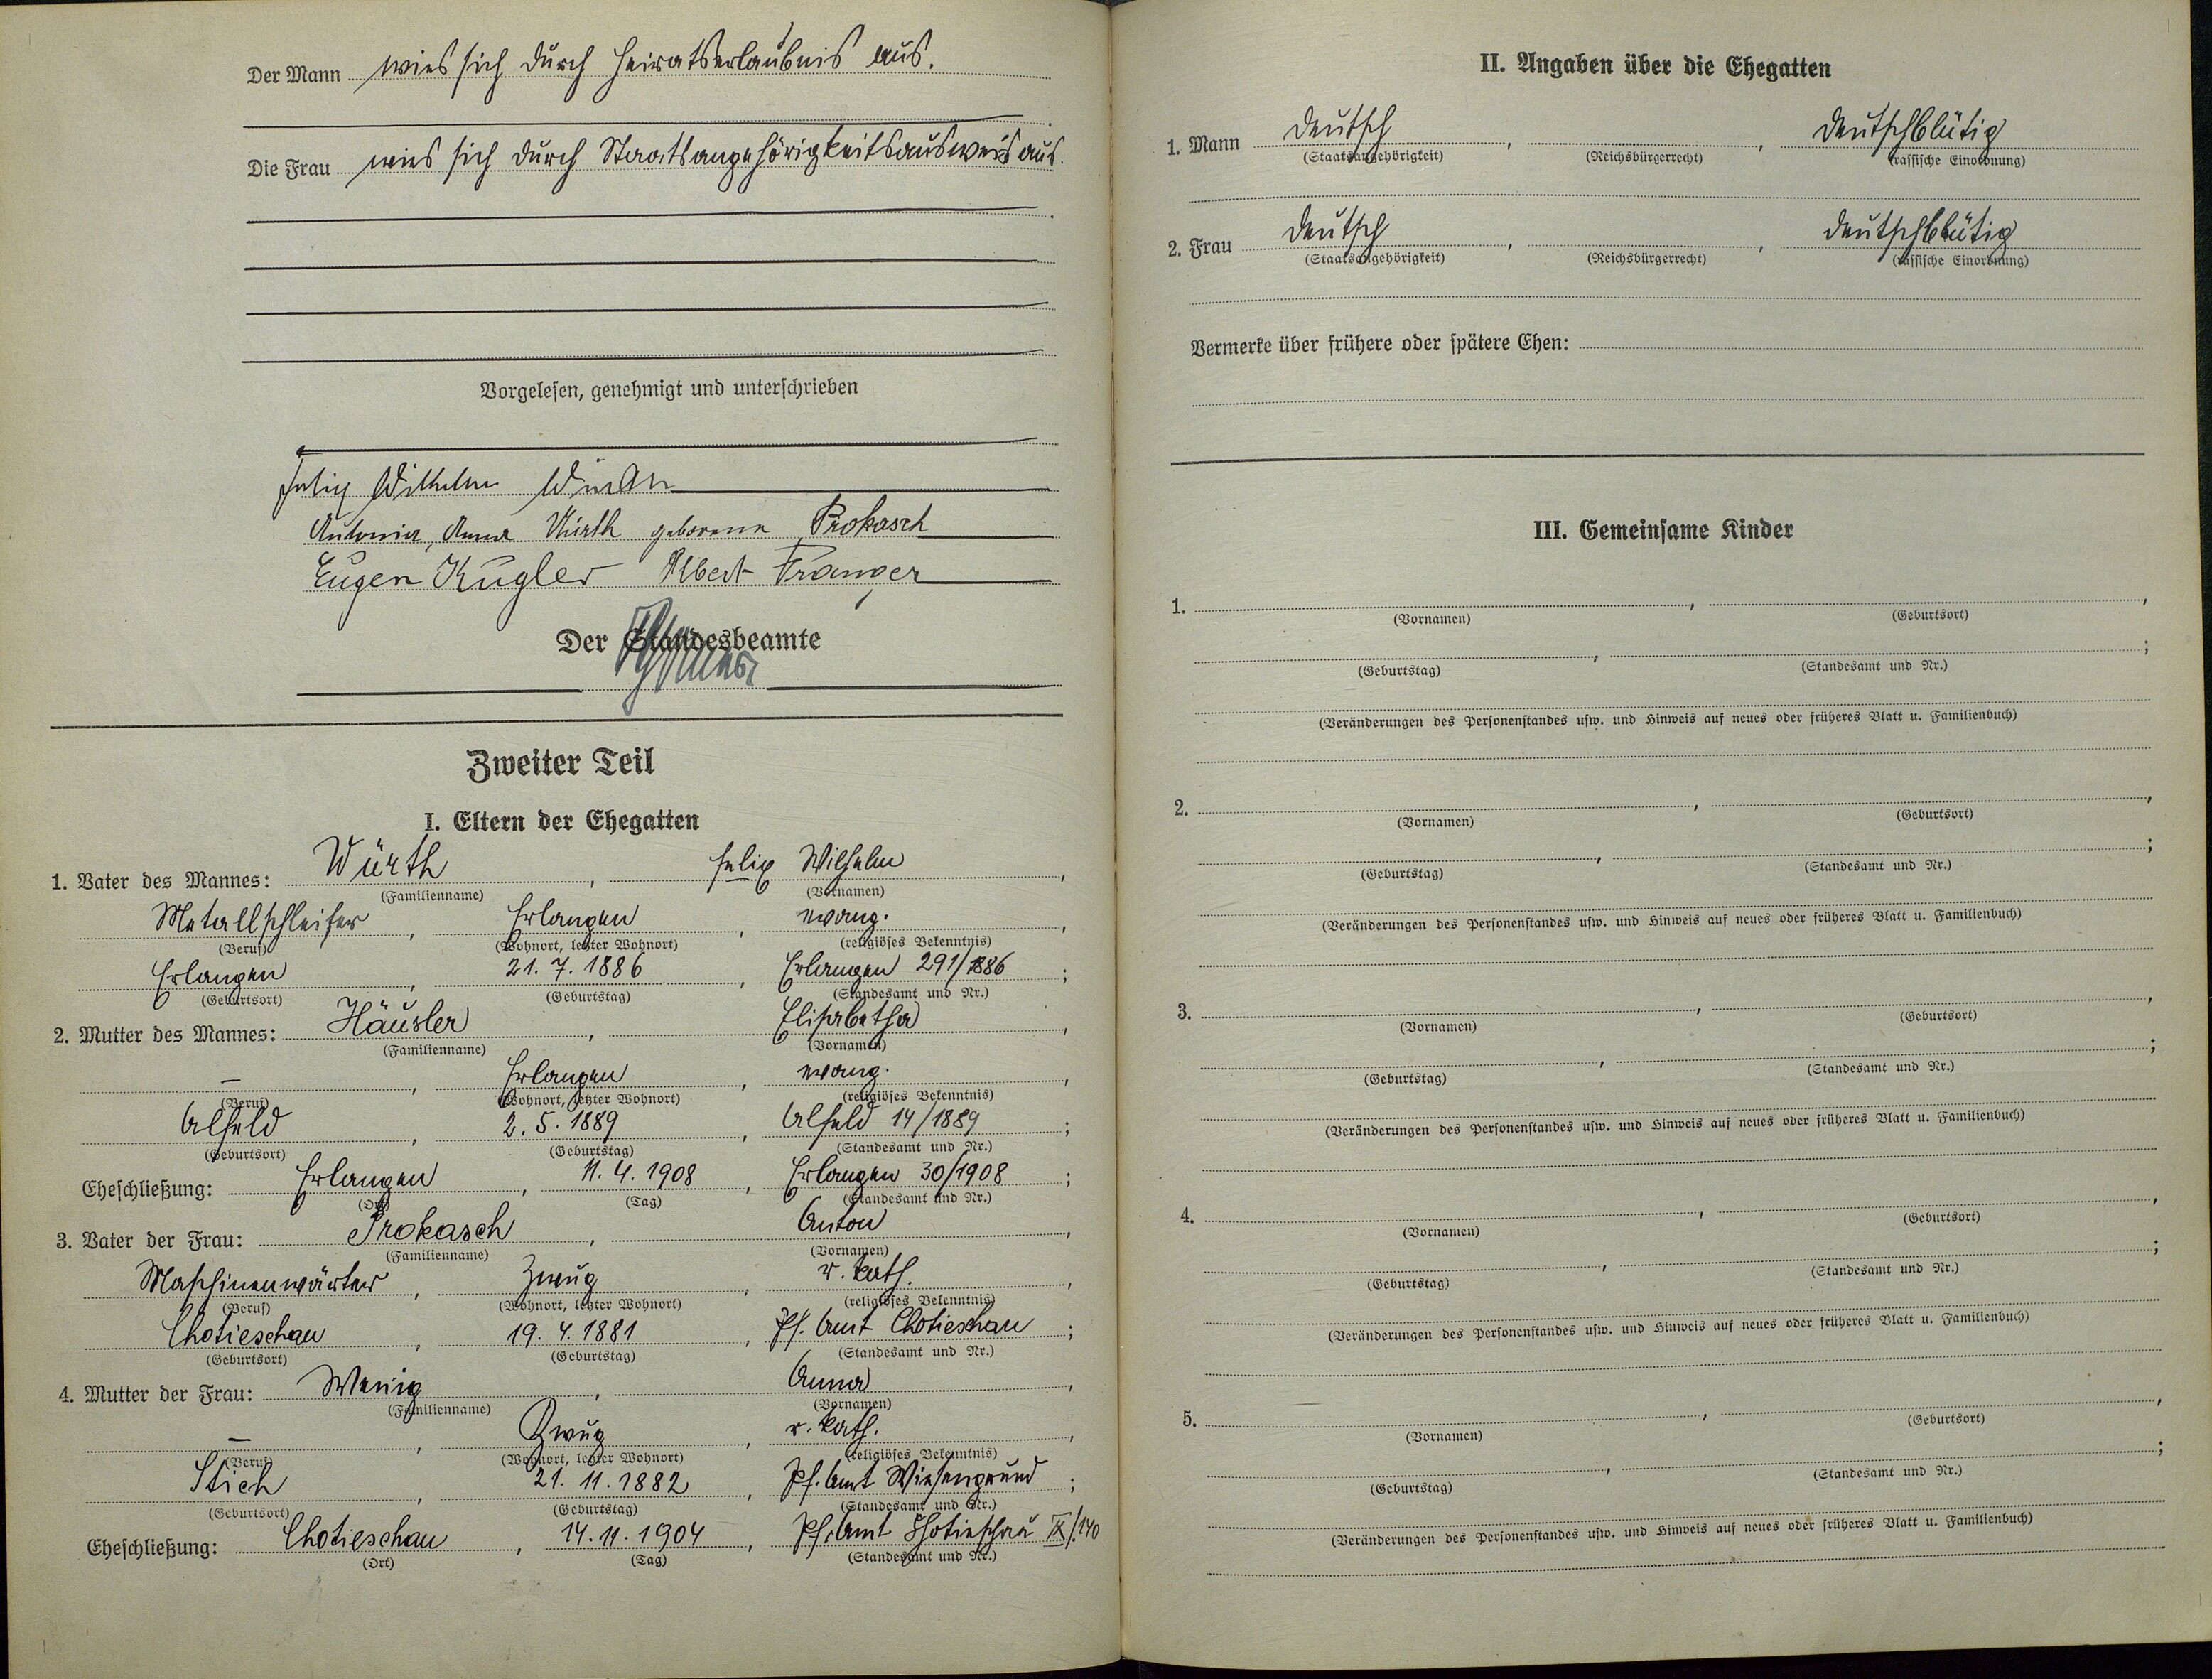 Der Mann wies sich durch Heiratserlaubnis aus.
Die Frau wies sich durch Staatsangehörigkeitsausweis aus.
Vorgelesen, genehmigt und unterschrieben
Felix Wilhelm Würth
Antonia, Anna Würth geborene Prokasch
Eugen Kugler Albert
Der Standesbeamte
Zweiter Teil
I. Eltern der Ehegatten
1. Vater des Mannes: Würth, Felix Wilhelm,
(Familienname) (Vornamen)
Metallschleifer, Erlangen, evang.,
(Beruf) (Wohnort, letzter Wohnort) (religiöses Bekenntnis)
Erlangen, 21. 7. 1886, Erlangen 291/1886;
(Geburtsort) (Geburtstag) (Standesamt und Nr.)
2. Mutter des Mannes: Häusler, Elisabetha,
(Familienname) (Vornamen)
–, Erlangen, evang.,
(Beruf) (Wohnort, letzter Wohnort) (religiöses Bekenntnis)
Alfeld, 2. 5. 1889, Alfeld 14/1889;
(Geburtsort) (Geburtstag) (Standesamt und Nr.)
Eheschließung: Erlangen, 11. 4. 1908, Erlangen 30/1908;
(Ort) (Tag) (Standesamt und Nr.)
3. Vater der Frau: Prokasch, Anton,
(Familienname) (Vornamen)
Maschinenwärter, Zwug, r. kath.,
(Beruf) (Wohnort, letzter Wohnort) (religiöses Bekenntnis)
Chotieschau, 19. 4. 1881, Pf. Amt Chotieschau;
(Geburtsort) (Geburtstag) (Standesamt und Nr.)
4. Mutter der Frau: Wenig, Anna,
(Familienname) (Vornamen)
–, Zwug, r. kath.,
(Beruf) (Wohnort, letzter Wohnort) (religiöses Bekenntnis)
Stich, 21. 11. 1882, Pf. Amt Wiesengrund;
(Geburtsort) (Geburtstag) (Standesamt und Nr.)
Eheschließung: Chotieschau, 14. 11. 1904, Pf. Amt Chotieschau IX/140
(Ort) (Tag) (Standesamt und Nr.)
II. Angaben über die Ehegatten
1. Mann deutsch, , deutschblütig
(Staatsangehörigkeit) (Reichsbürgerrecht) (rassische Einordnung)
2. Frau deutsch, , deutschblütig
(Staatsangehörigkeit) (Reichsbürgerrecht) (rassische Einordnung)
Vermerke über frühere oder spätere Ehen:
III. Gemeinsame Kinder
1. , ,
(Vornamen) (Geburtsort)
, ;
(Geburtstag) (Standesamt und Nr.)
(Veränderungen des Personenstandes usw. und Hinweis auf neues oder früheres Blatt u. Familienbuch)
2. , ,
(Vornamen) (Geburtsort)
, ;
(Geburtstag) (Standesamt und Nr.)
(Veränderungen des Personenstandes usw. und Hinweis auf neues oder früheres Blatt u. Familienbuch)
3. , ,
(Vornamen) (Geburtsort)
, ;
(Geburtstag) (Standesamt und Nr.)
(Veränderungen des Personenstandes usw. und Hinweis auf neues oder früheres Blatt u. Familienbuch)
4. , ,
(Vornamen) (Geburtsort)
, ;
(Geburtstag) (Standesamt und Nr.)
(Veränderungen des Personenstandes usw. und Hinweis auf neues oder früheres Blatt u. Familienbuch)
5. , ,
(Vornamen) (Geburtsort)
, ;
(Geburtstag) (Standesamt und Nr.)
(Veränderungen des Personenstandes usw. und Hinweis auf neues oder früheres Blatt u. Familienbuch)